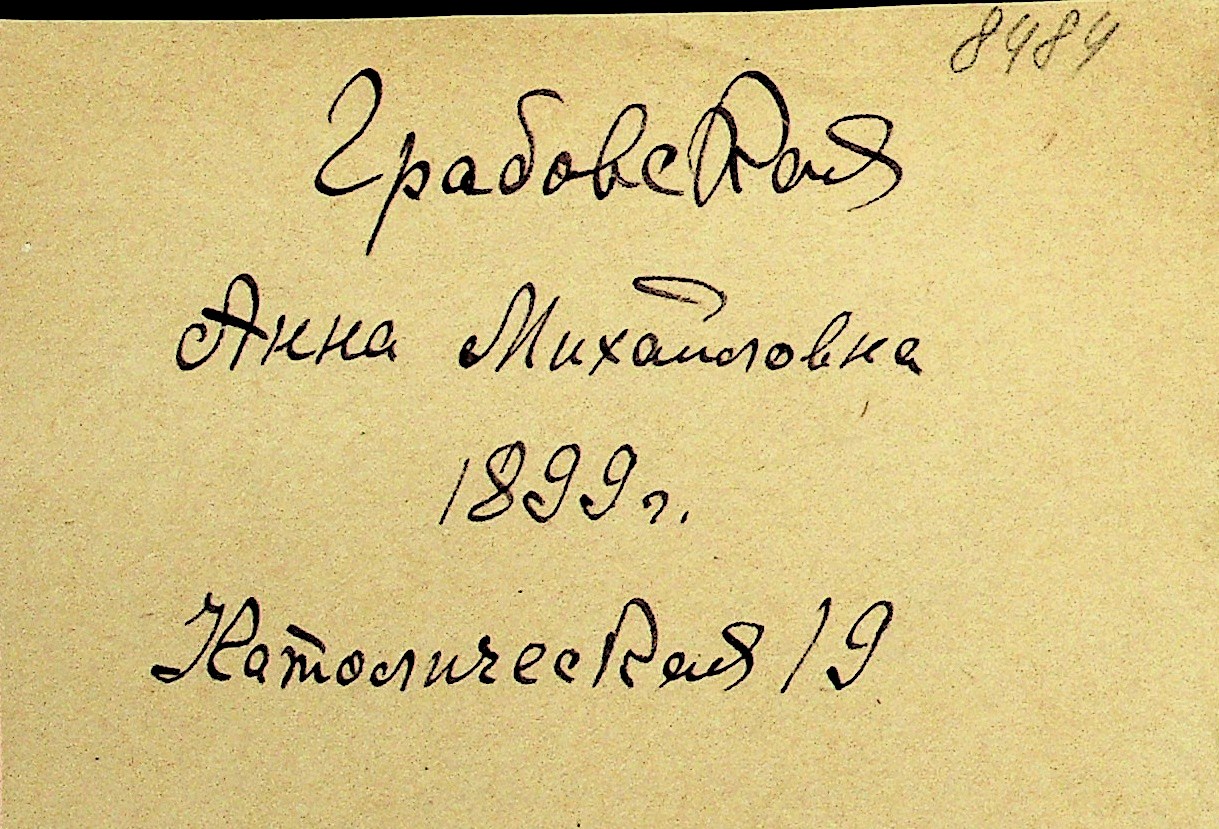 8484
Грабовская
Анна Михайловна
1899 г.
Католическая 19